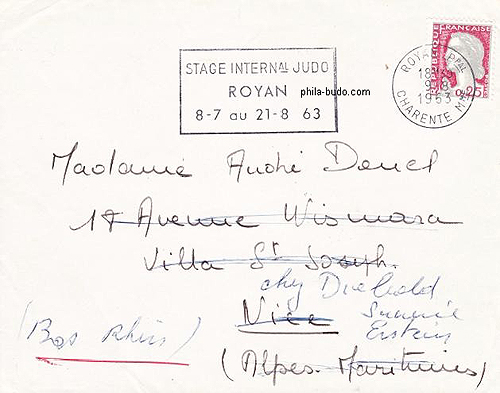 STAGE INTERNAL JUDO
ROYAN
8-7 au 21-8 63
phila-budo.com
REPUBLIQUE FRANÇAISE
0,25
ROYAN PPAL
18H
9-8
1963
CHARENTE MME
Madame André Denel
17 Avenue Wismara
Villa St Joseph.
chez Diebold
Nice
Erstein
(Bas Rhin)
(Alpes-Maritimes)